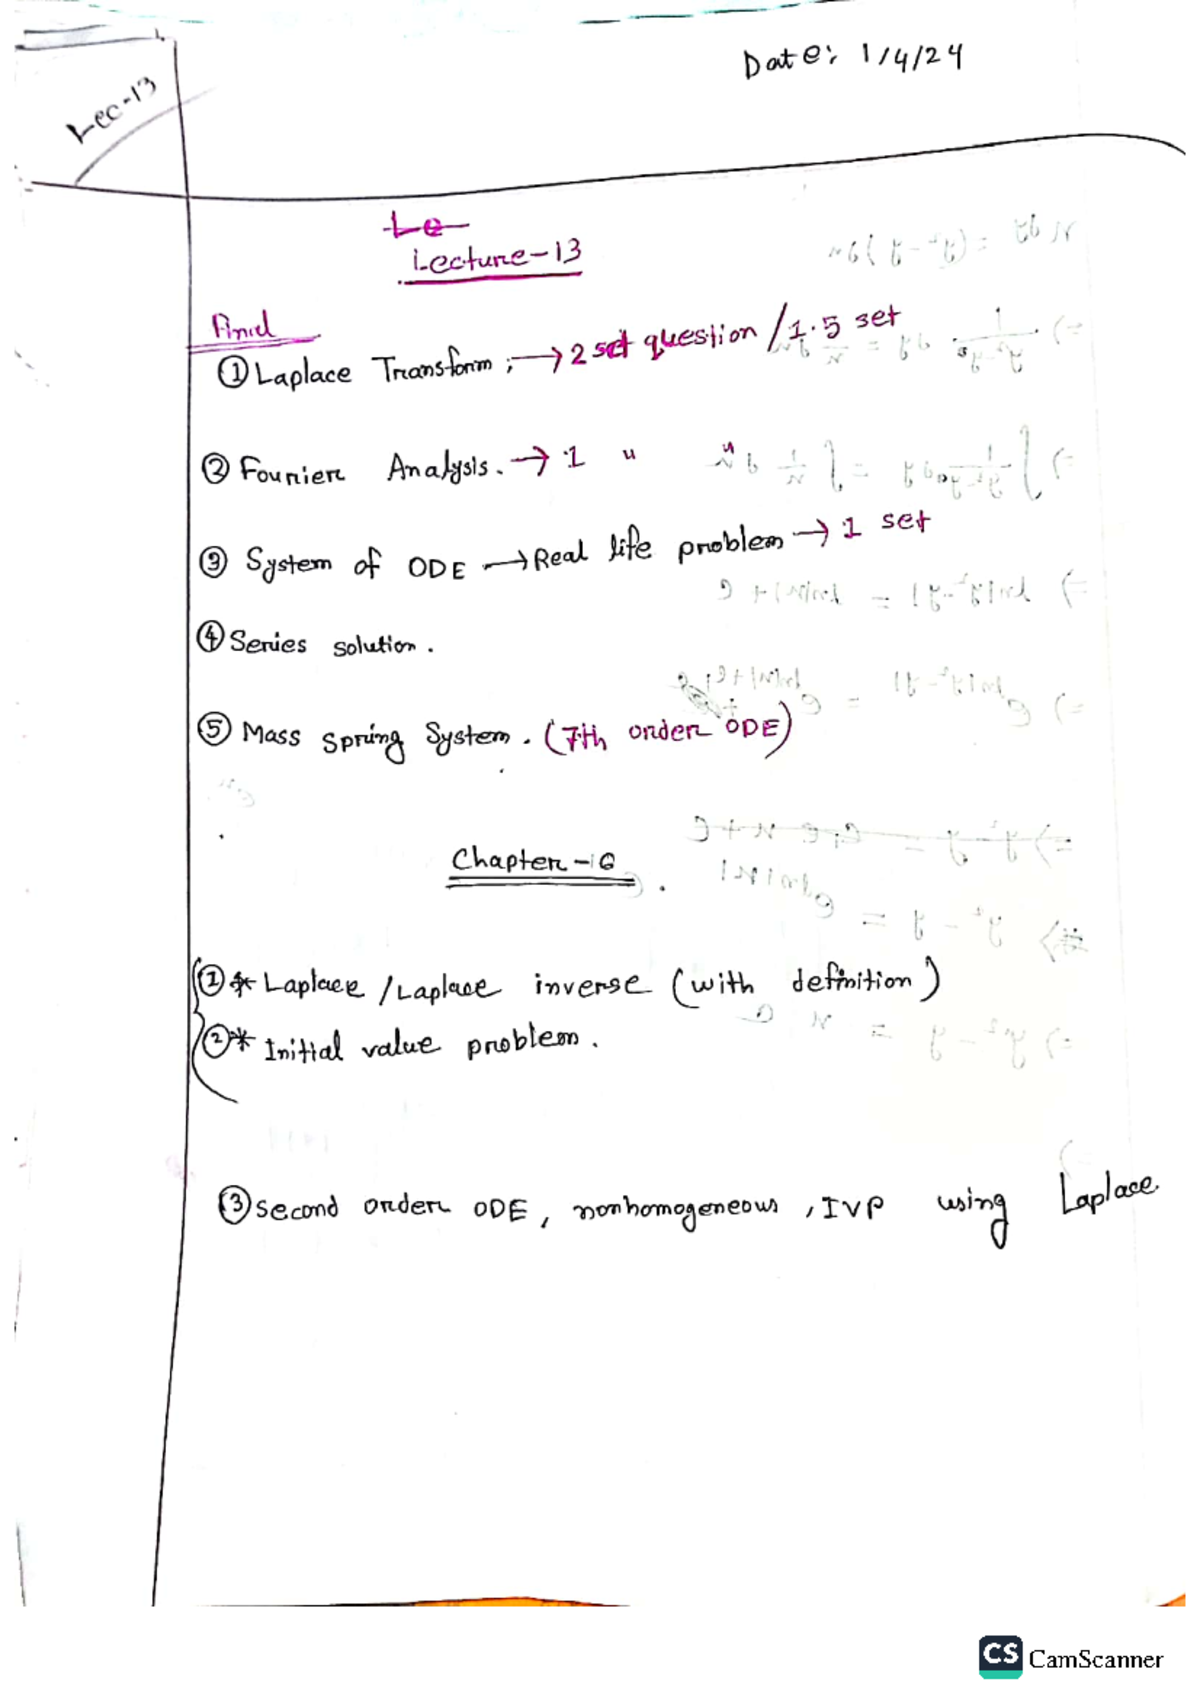 Date: 1/4/24
Lec-13
Le
Lecture-13
Final
① Laplace Transform; → 2 set question / 1.5 set
② Fourier Analysis. → 1 " "
③ System of ODE → Real life problem → 1 set
④ Series solution.
⑤ Mass Spring System. (7th order ODE)
Chapter-6
① * Laplace / Laplace inverse (with definition)
② * Initial value problem.
③ Second order ODE, nonhomogeneous, IVP using Laplace.
CS CamScanner